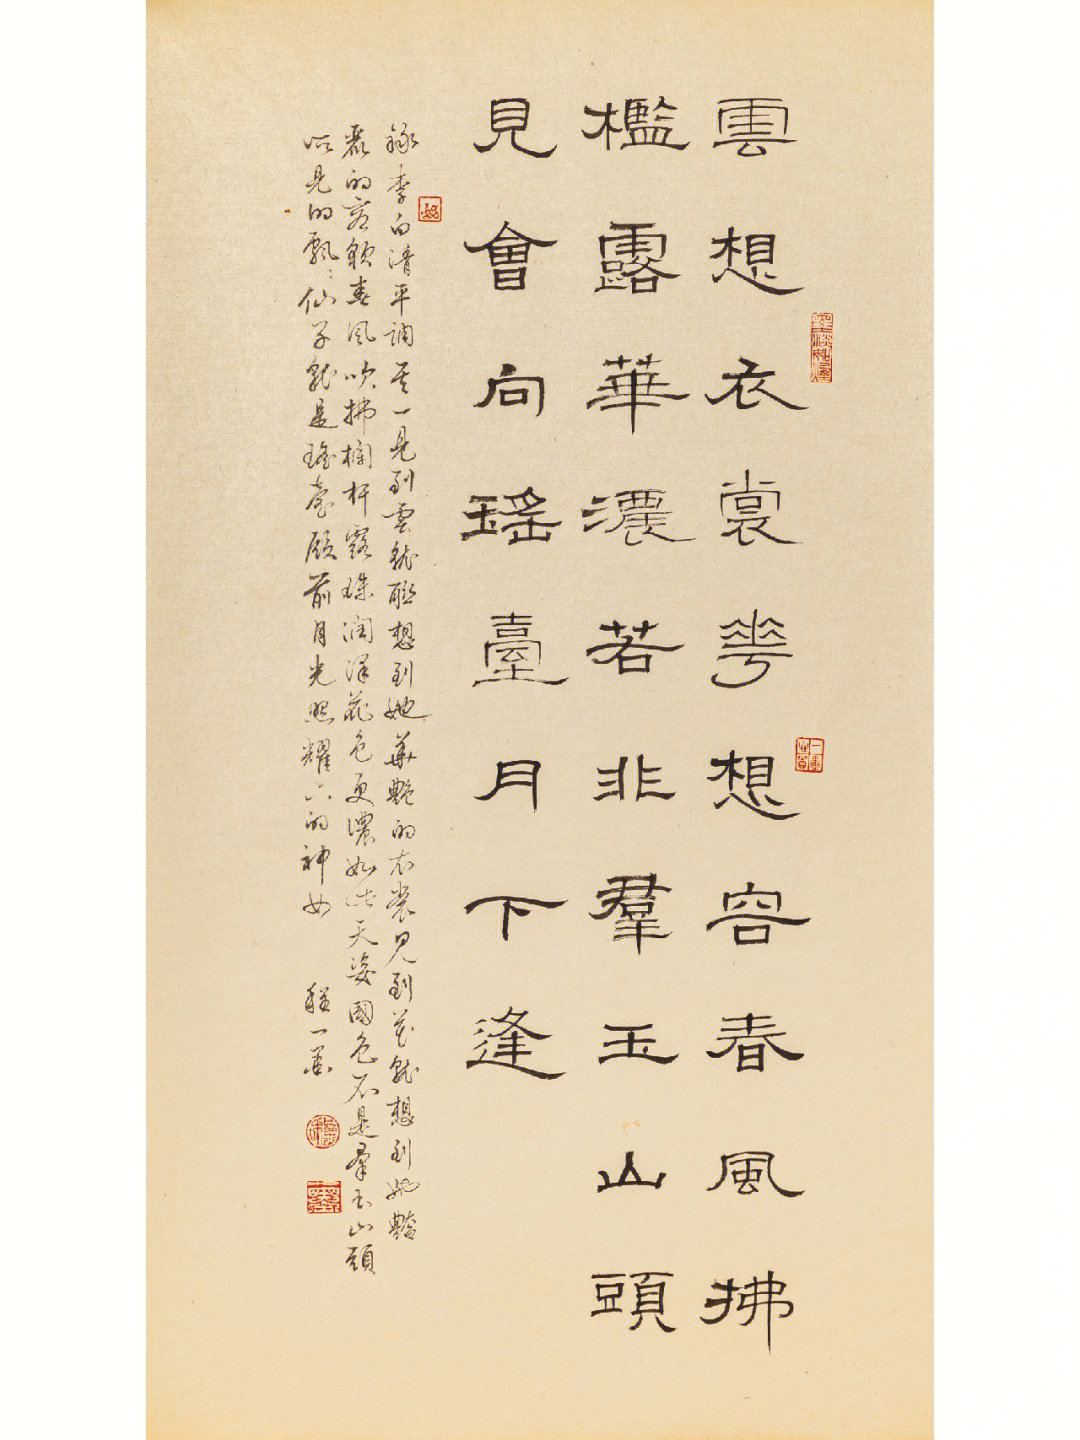 雲想衣裳華想容春風拂
檻露華濃若非羣玉山頭
見會向瑤臺月下逢
錄李白清平調其一見到雲就聯想到她華艷的衣裳見到花就想到她艷
麗的容顏春風吹拂欄杆露珠潤澤花色更濃如此天姿國色不是羣玉山頭
所見的飄飄仙子就是瑤臺殿前月光照耀下的神女
程一墨